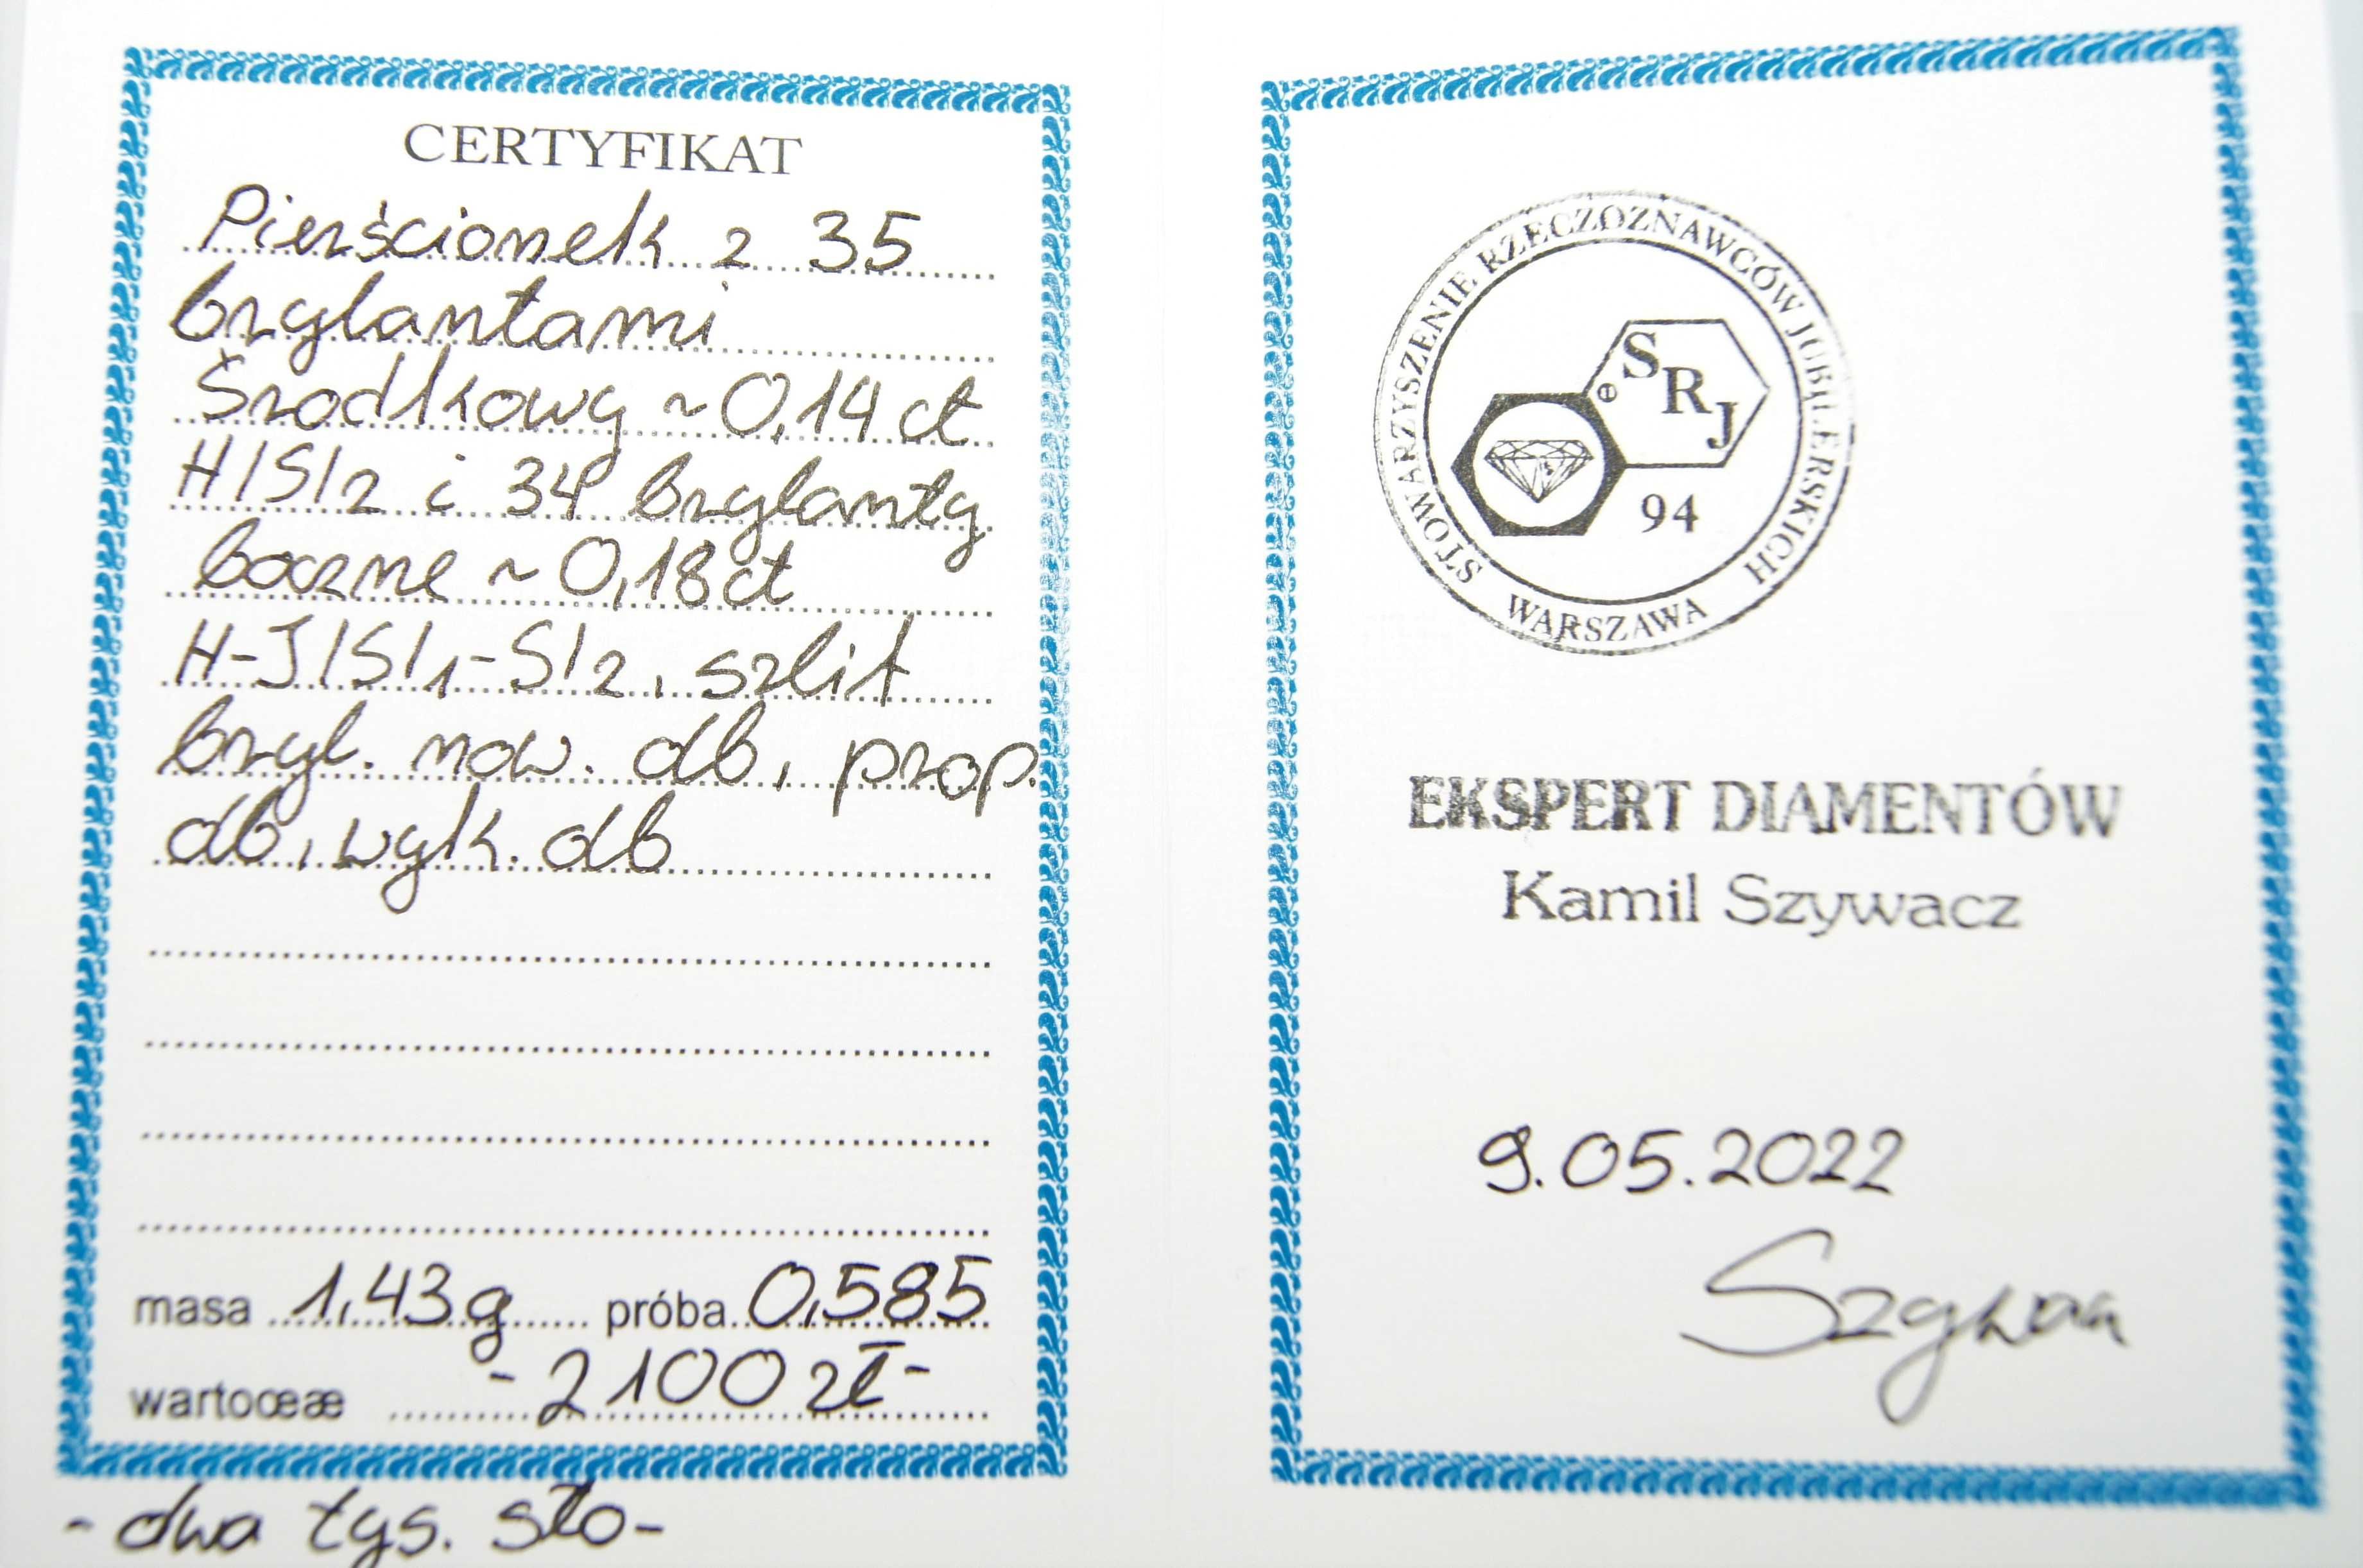 CERTYFIKAT
Pierścionek z 35
brylantami
Środkowy ~0,14 ct
H/SI2 i 34 brylanty
boczne ~0,18ct
H-J/SI1-SI2, szlif
bryl. now. db, prop.
db, wyk. db
masa 1,43g próba 0,585
wartoœæ -2100 zł-
-dwa tys. sto-
STOWARZYSZENIE RZECZOZNAWCÓW JUBILERSKICH
WARSZAWA
SRJ
94
EKSPERT DIAMENTÓW
Kamil Szywacz
9.05.2022